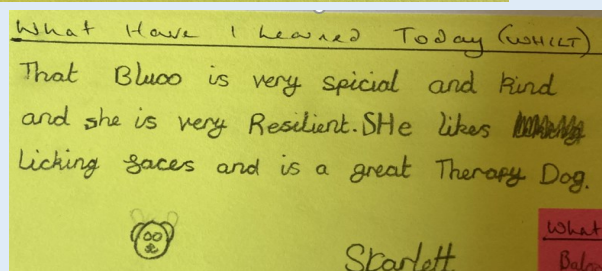 What Have I Learned Today (WHILT)
That Bluoo is very spicial and kind
and she is very Resilient. SHe likes
Licking faces and is a great Therapy Dog.
Skarlett
What